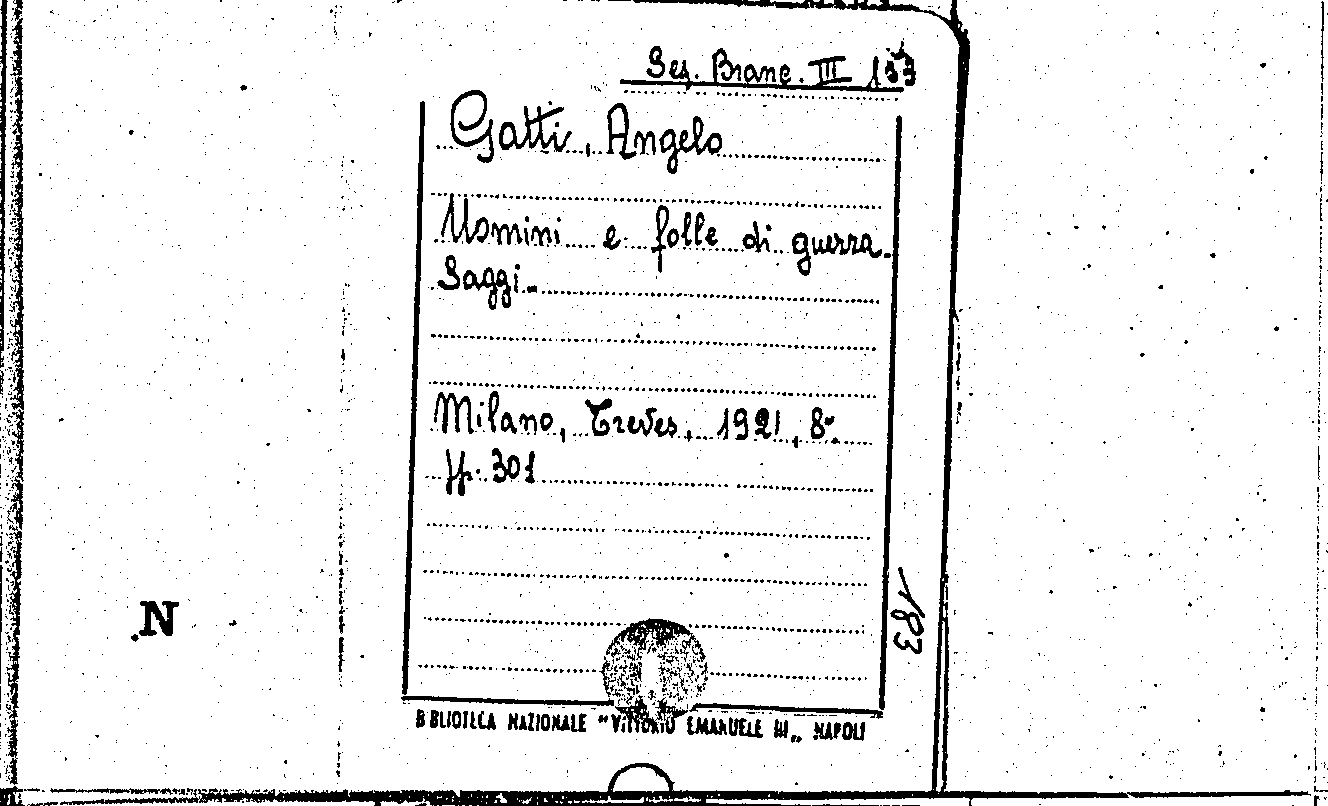 Sez. Branc. III 133
Gatti, Angelo
Uomini e folle di guerra.
Saggi.
Milano, Treves, 1921, 8°.
pp. 301
183
N
BIBLIOTECA NAZIONALE "VITTORIO EMANUELE III„ NAPOLI